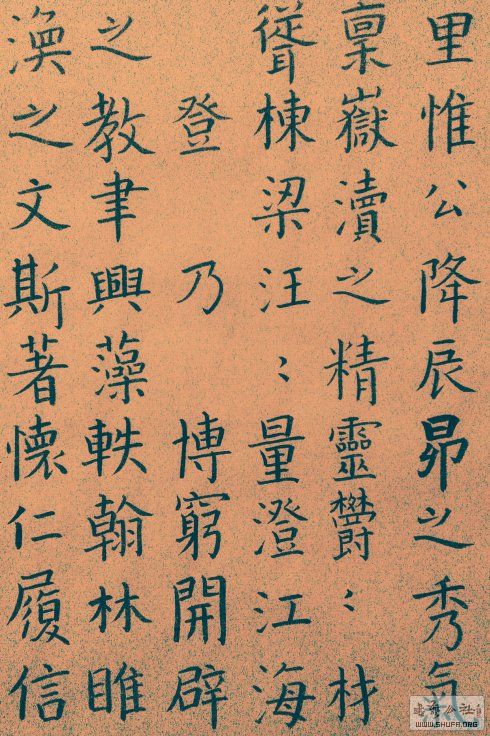 里惟公降辰昴之秀氣
稟嶽瀆之精靈欝〻材
聳棟梁汪〻量澄江海
登乃博窮開辟
之教聿興藻軼翰林睢
渙之文斯著懷仁履信
WWW.SHUFA.ORG